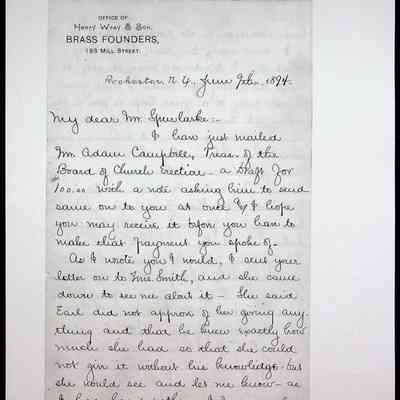 OFFICE OF
Henry Wray & Son,
BRASS FOUNDERS,
193 MILL STREET.
Rochester N.Y. June 9th 1894.
My dear Mr.
I have just mailed
Mr. Adam Campbell, Treas. of the
Board of Church Erection - a Draft for
100.00 with a note asking him to send
same on to you at once & I hope
you may receive it before you have to
make that payment you spoke of-
As I wrote you I would, I sent your
letter on to Smith, and she came
down to see me about it - She said
Earl did not approve of her giving any-
thing and that he knew exactly how
much she had so that she could
not give it without his knowledge- but
she would see and let me know - as